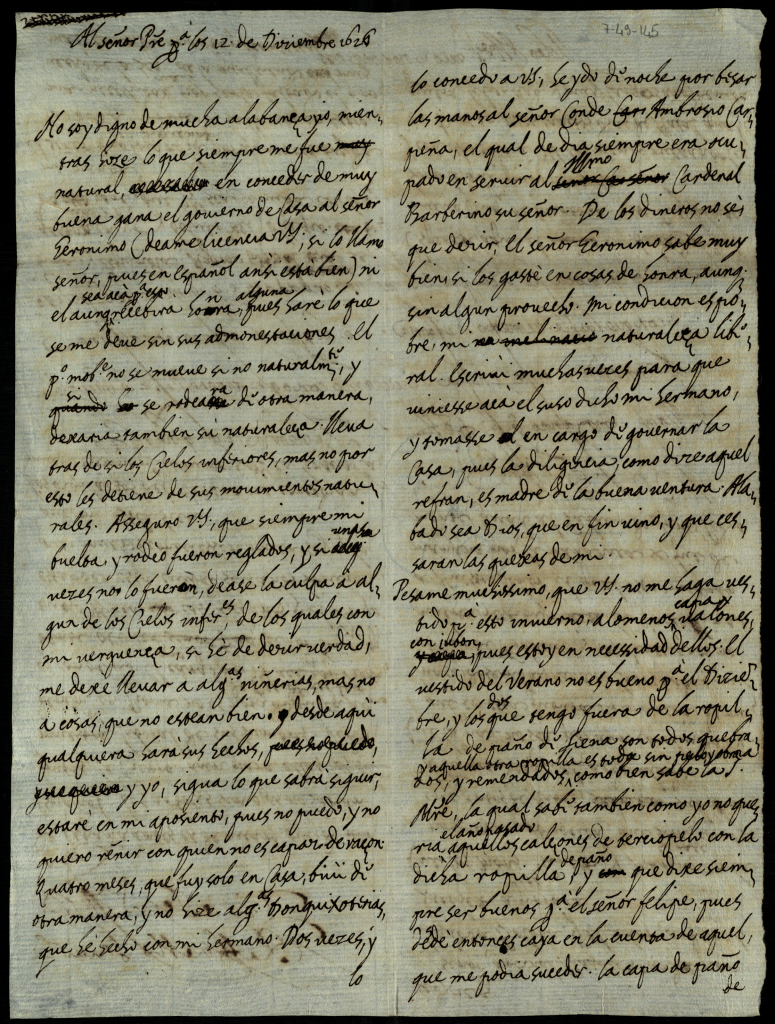 7-49-145
Al señor Pre pa los 12 de Diziembre 1626
No soy digno de mucha alabança yo, mien-
tras hize lo que siempre me fue muy
natural, en conceder de muy
buena gana el govierno de Casa al señor
Geronimo (deame licencia VS, si lo llamo
señor, pues en Español ansi està bien) ni
el aunq recebira honra alguna, pues harè lo que
se me deve sin sus admonestaciones. El
po mobe no se mueve si no naturalmte, y
si se rodeara de otra manera,
dexaria tambien su naturaleça. Lleva
tras de si los Cielos inferiores, mas no por
esto les detiene de sus movimientos natu-
rales. Asseguro VS, que siempre mi
buelta y rodeo fueron reglados, y si
vezes no lo fueron, dease la culpa à al-
gun de los Cielos inferes, de los quales con
mi verguença, si hè de dezir verdad,
me dexè llevar a algas niñerias, mas no
à cosas, que no estean bien. y desde aqui
qualquiera harà sus hechos,
y yo, sigua lo que sabrà siguir,
estarè en mi aposiento, pues no puedo, y no
quiero reñir con quien no es capaz de raçon.
Quatro meses, que fuy solo en Casa, biui de
otra manera, y no hize algas Donquixoterias,
que hè hecho con mi hermano. Dos vezes, y
lo
lo concedo a VS, he ydo de noche por besar
las manos al señor Conde Ambrosio Car-
peña, el qual de dia siempre era ocu-
pado en servir al Illmo señor Cardenal
Barberino su señor. De los dineros no sè,
que dezir, El señor Geronimo sabe muy
bien, si los gastè en cosas de honra, aunq
sin algun provecho. Mi condicion es po-
bre, mi naturaleça libe-
ral. Escrivi muchas vezes para que
viniesse acà el suso dicho mi hermano,
y tomasse el en cargo de governar la
Casa, pues la diligencia, como dize aquel
refran, es madre de la buena ventura. Ala-
bado sea Dios, que en fin vino, y que ces-
saran las quexas de mi.
Pesame muchissimo, que VS no me haga ves-
tido pa esto invierno, alomenos capa, y calones,
con jubon, pues estoy en necessidad dellos. El
vestido del Verano no es bueno pa el Dizie-
bre, y los dos que tengo fuera de la ropil-
la de paño de Siena son todos quebra-
y aquella otra ropilla es toda sin pelo y obra
dos, y remendados, como bien sabe la S.
Mre, la qual sabe tambien como yo no que-
el año passado
ria aquellos calçones de terciopelo con la
dicha ropilla de paño, y que dixe siem-
pre ser buenos pa el señor felipe, pues
dède entonces caya en la cuenta de aquel,
que me podia suceder. la capa de paño
de